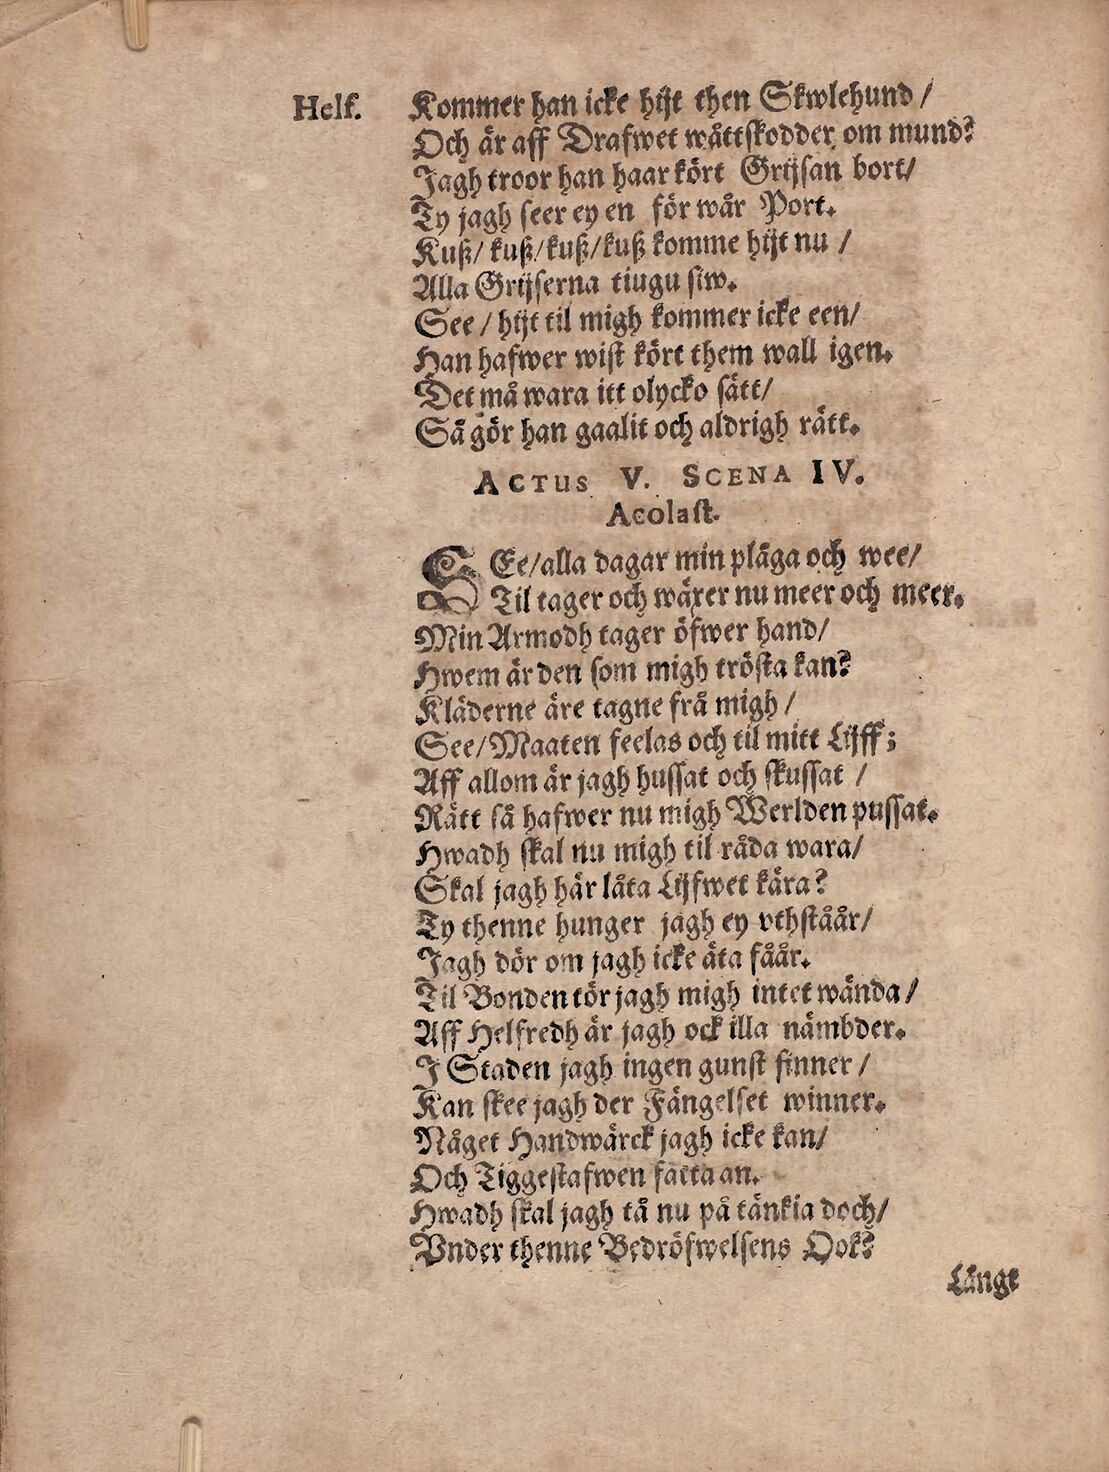 Helf. Kommer han icke hijt then Skwlehund /
Och är aff Drafwet wåttskodder om mund?
Jagh troor han haar kört Grijsan bort/
Ty jagh seer ey en för wår Port.
Kuß/ kuß/kuß/kuß komme hijt nu /
Alla Grijserna tiugu siw.
See / hijt til migh kommer icke een/
Han hafwer wist kört them wall igen.
Det må wara itt olycko sätt/
Så gör han gaalit och aldrigh rätt.
ACTUS V. SCENA IV.
Acolast.
SEe/alla dagar min plåga och wee/
Til tager och wäxer nu meer och meer.
Min Armodh tager öfwer hand/
Hwem är den som migh trösta kan?
Kläderne äre tagne frå migh /
See/Maaten feelas och til mitt Lijff;
Aff allom är jagh hussat och skussat /
Rätt så hafwer nu migh Werlden pussat.
Hwadh skal nu migh til råda wara/
Skal jagh här låta Lijfwet kära?
Ty thenne hunger jagh ey vthståår/
Jagh dör om jagh icke äta fåår.
Til Bonden tör jagh migh intet wända/
Aff Helfredh är jagh ock illa nämbder.
J Staden jagh ingen gunst finner /
Kan skee jagh der Fängelset winner.
Något Handwärck jagh icke kan/
Och Tiggestafwen fatta an.
Hwadh skal jagh tå nu på tänkia doch/
Vnder thenne Bedröfwelsens Ook?
Långt